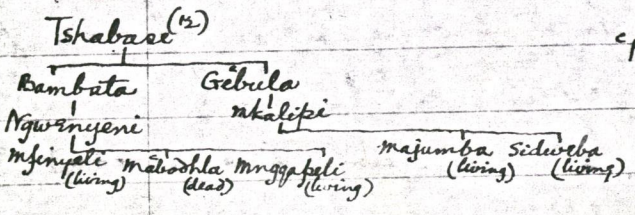 Tshabase (12)
Bambata Gebula
Ngwenyeni Mkalipi
Mfinyeli (living) Mabodhla (dead) Mnggapeli (living) Majumba (living) Sidweba (living)